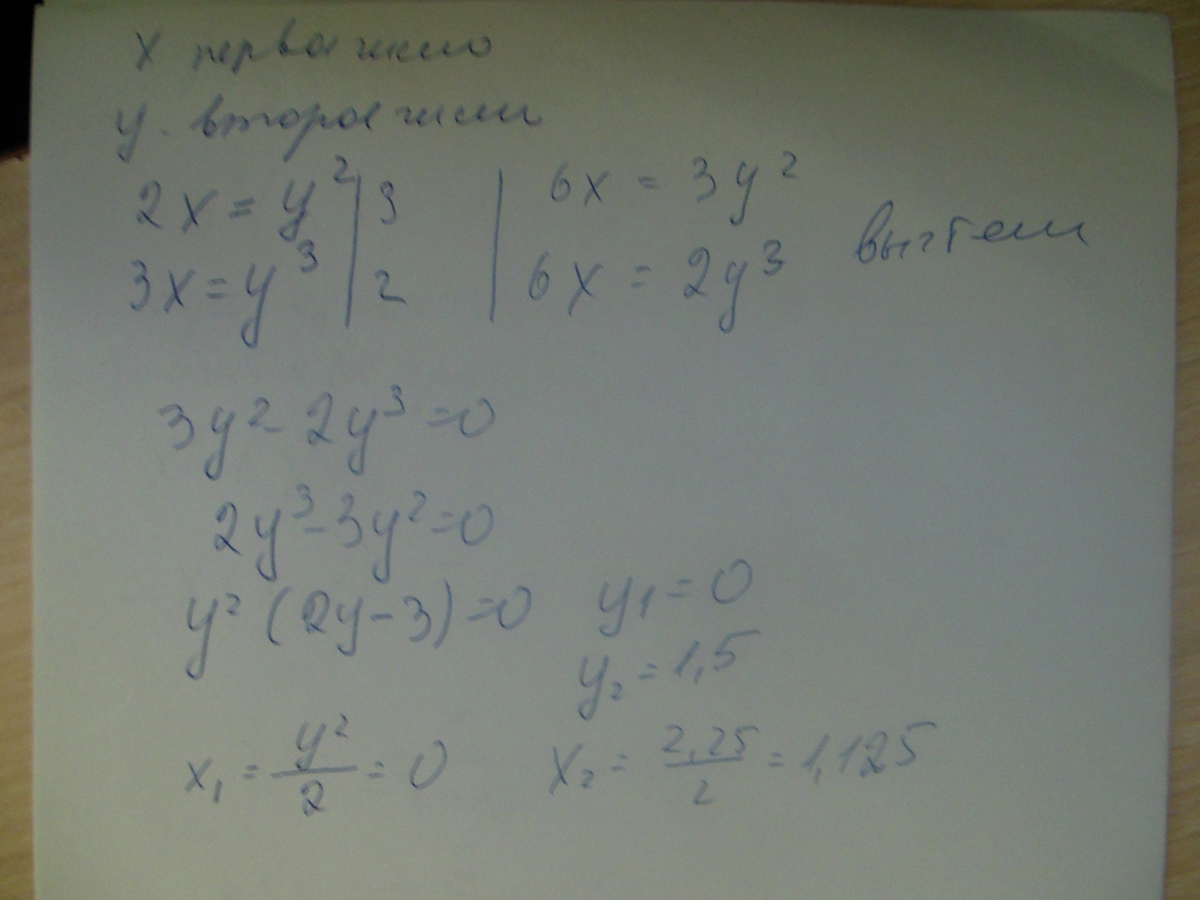 x первое число
y - второе число
2x = y² | 3 | 6x = 3y²
3x = y³ | 2 | 6x = 2y³ вычтем
3y² - 2y³ = 0
2y³ - 3y² = 0
y² (2y - 3) = 0 y₁ = 0
y₂ = 1,5
x₁ = y²/2 = 0 x₂ = 2,25/2 = 1,125